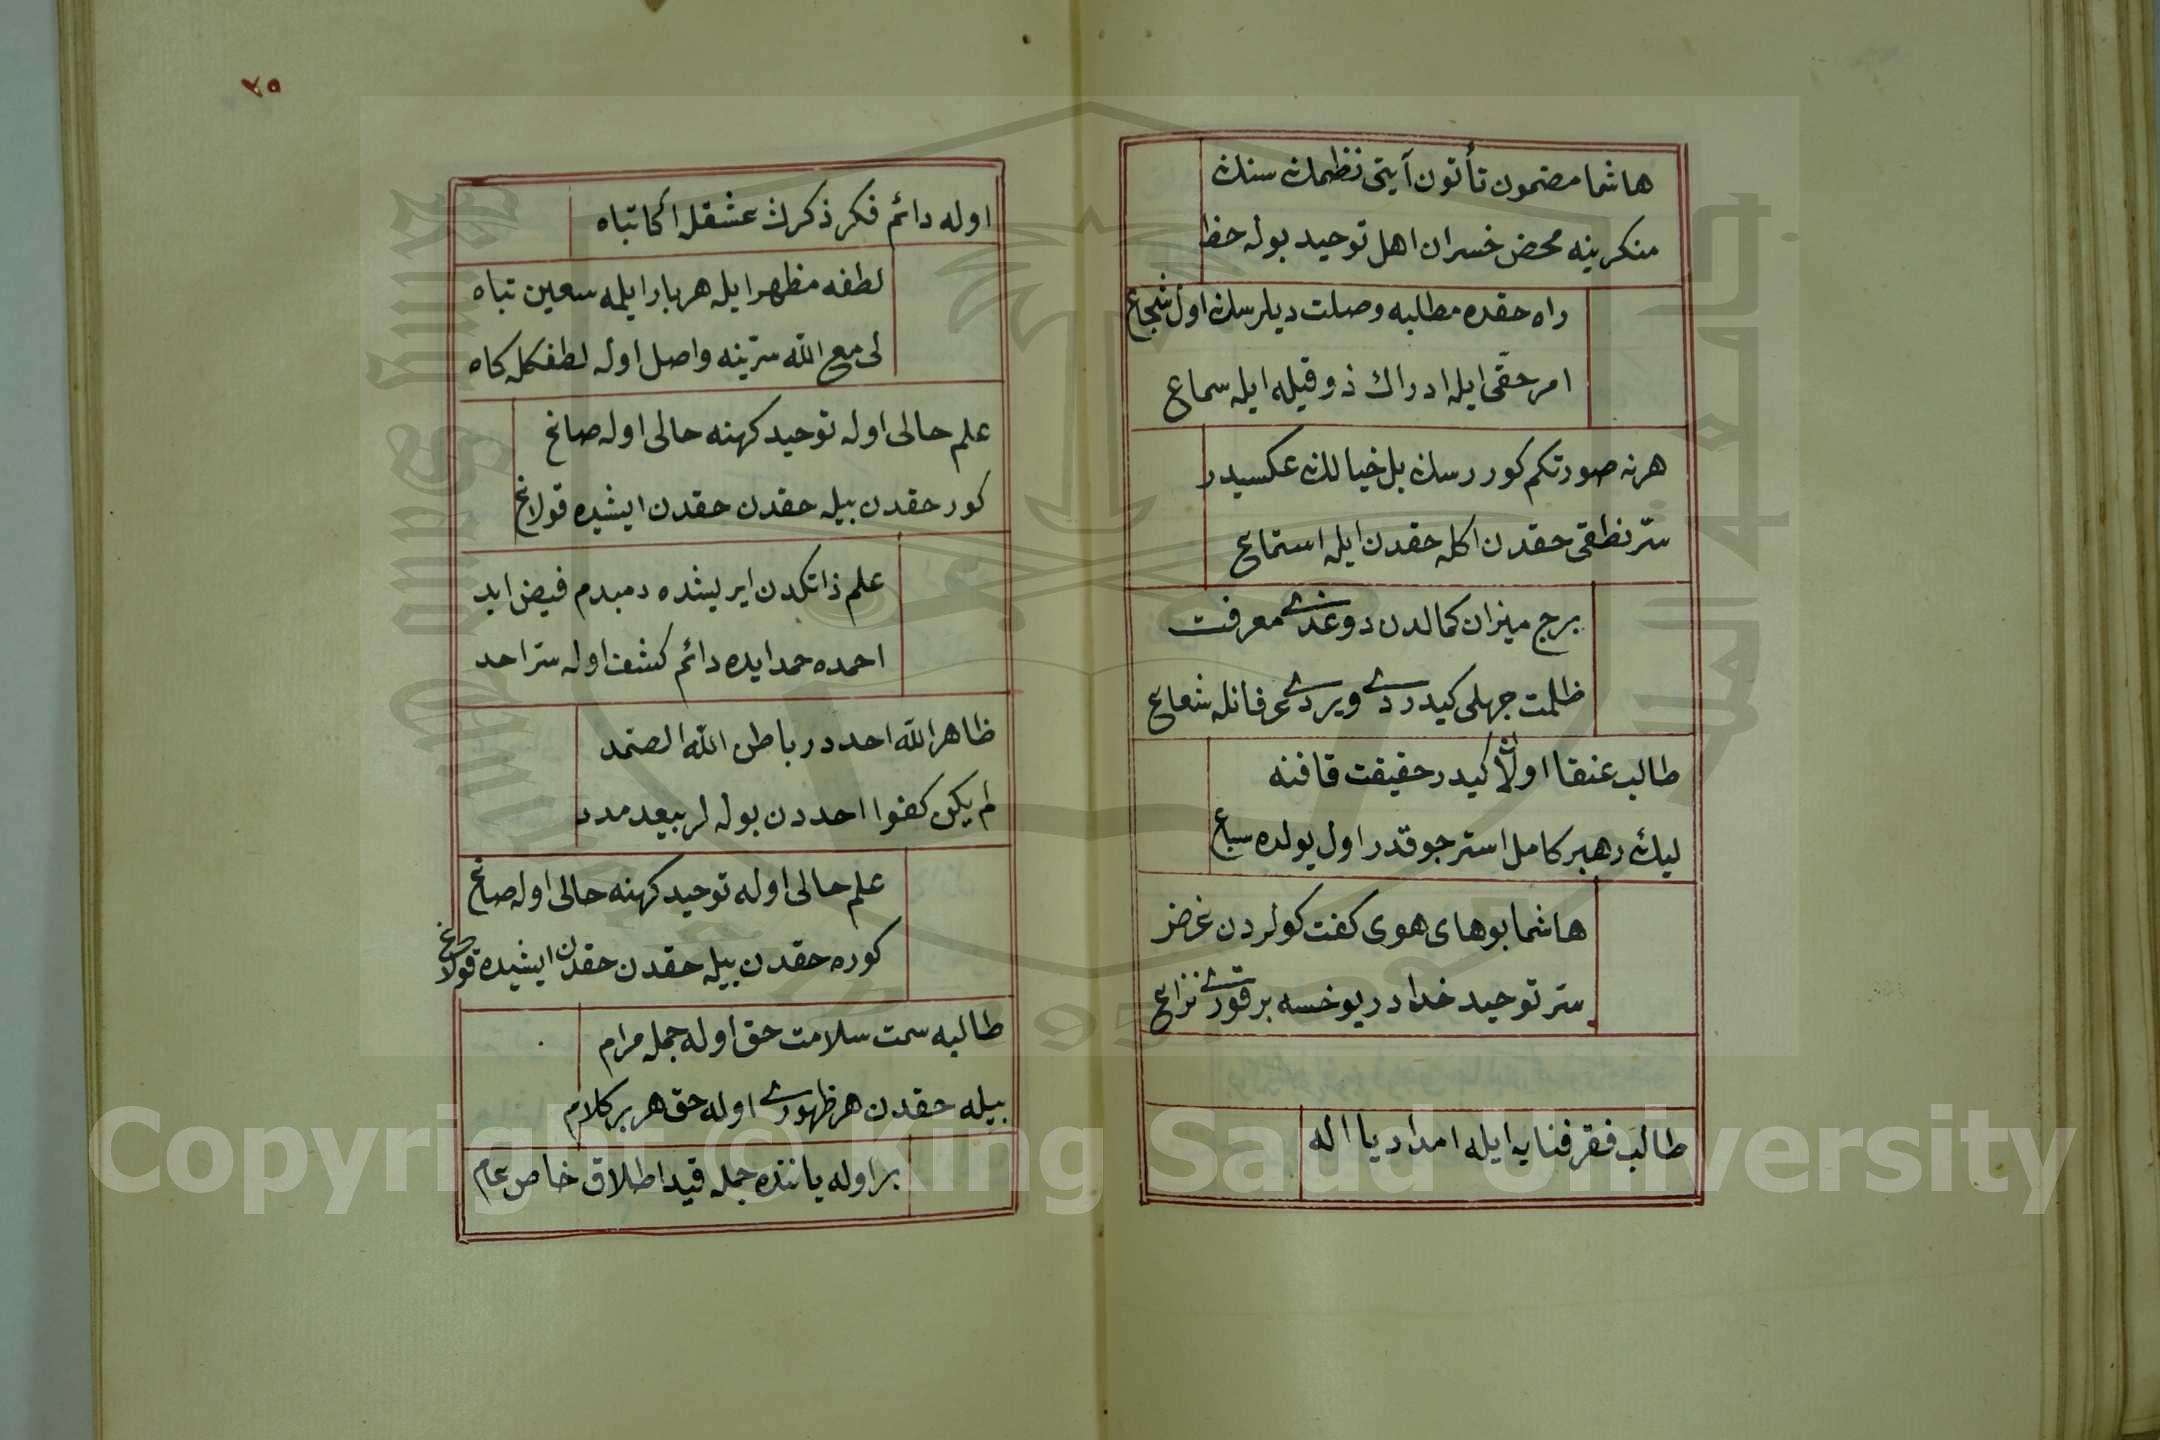 هاشما مضمون تأتون آیتی نظمك سنك
منكرینه محض خسران اهل توحید بوله حظ
راه حقده مطلبه وصلت دیلرسك اول شجاع
امر حقی ایله ادراك ذوقیله ایله سماع
هر نه صورتكم كوررسك بل خیالك عكسیدر
سر نطقی حقدن اكله حقدن ایله استماع
برج میزان كمالدن دوغدی معرفت
ظلمت جهلی كیدردی ویردی عرفانله شعاع
طالب عنقا اولان كیدر حقیقت قافنه
لیك رهبر كامل استر چوقدر اول یولده سباع
هاشما بو های هوی كفت كولردن غرض
سر توحید خدادر یوخسه بر قوری نزاع
طالب فقر فنایه ایله امداد یا اله
٢٥
اوله دائم فكر ذكرك عشقله اكا تباه
لطفه مظهر ایله هر بار ایلمه سعین تباه
لی مع الله سرینه واصل اوله لطفكله كاه
علم حالی اوله توحید كهنه حالی اوله صاغ
كور حقدن بیله حقدن حقدن ایشیده قولاغ
علم ذاتكدن ایریشده دمبدم فیض ابد
احمده حمد ایده دائم كشف اوله سر احد
ظاهر الله احددر باطن الله الصمد
لم یكن كفوا احددن بوله لر بیعد مدد
علم حالی اوله توحید كهنه حالی اوله صاغ
كوره حقدن بیله حقدن حقدن ایشیده قولاغ
طالبه سمت سلامت حق اوله جمله مرام
بیله حقدن هر ظهوری اوله حق هر بر كلام
بر اوله یاننده جمله قید اطلاق خاص عام
Copyright © King Saud University
King Saud University
1957